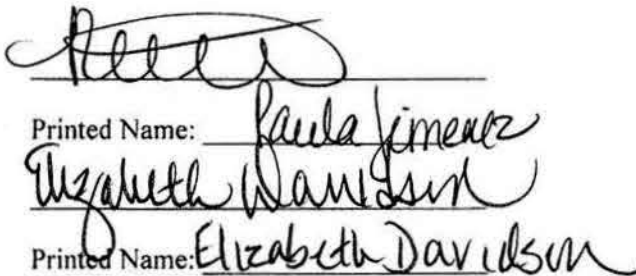 Printed Name: Paula Jimenez
Elizabeth Davidson
Printed Name: Elizabeth Davidson